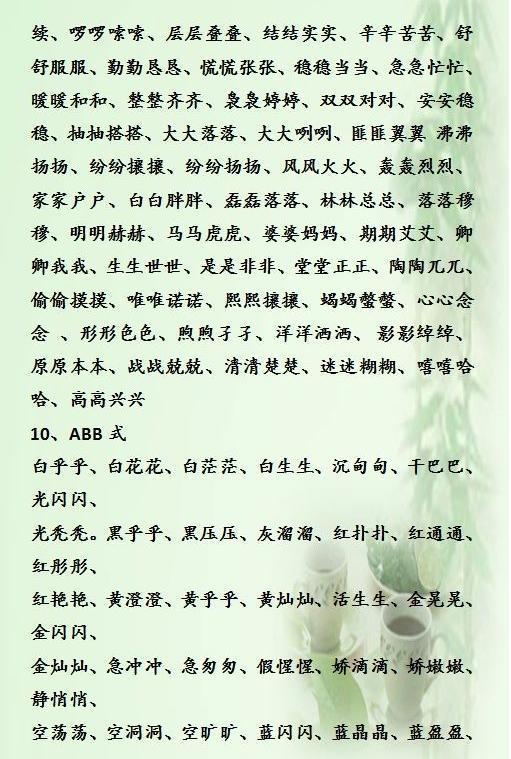 续、啰啰嗦嗦、层层叠叠、结结实实、辛辛苦苦、舒
舒服服、勤勤恳恳、慌慌张张、稳稳当当、急急忙忙、
暖暖和和、整整齐齐、袅袅婷婷、双双对对、安安稳
稳、抽抽搭搭、大大落落、大大咧咧、匪匪翼翼 沸沸
扬扬、纷纷攘攘、纷纷扬扬、风风火火、轰轰烈烈、
家家户户、白白胖胖、磊磊落落、林林总总、落落穆
穆、明明赫赫、马马虎虎、婆婆妈妈、期期艾艾、卿
卿我我、生生世世、是是非非、堂堂正正、陶陶兀兀、
偷偷摸摸、唯唯诺诺、熙熙攘攘、蝎蝎螫螫、心心念
念 、形形色色、煦煦孑孑、洋洋洒洒、 影影绰绰、
原原本本、战战兢兢、清清楚楚、迷迷糊糊、嘻嘻哈
哈、高高兴兴
10、ABB 式
白乎乎、白花花、白茫茫、白生生、沉甸甸、干巴巴、
光闪闪、
光秃秃。黑乎乎、黑压压、灰溜溜、红扑扑、红通通、
红彤彤、
红艳艳、黄澄澄、黄乎乎、黄灿灿、活生生、金晃晃、
金闪闪、
金灿灿、急冲冲、急匆匆、假惺惺、娇滴滴、娇嫩嫩、
静悄悄、
空荡荡、空洞洞、空旷旷、蓝闪闪、蓝晶晶、蓝盈盈、